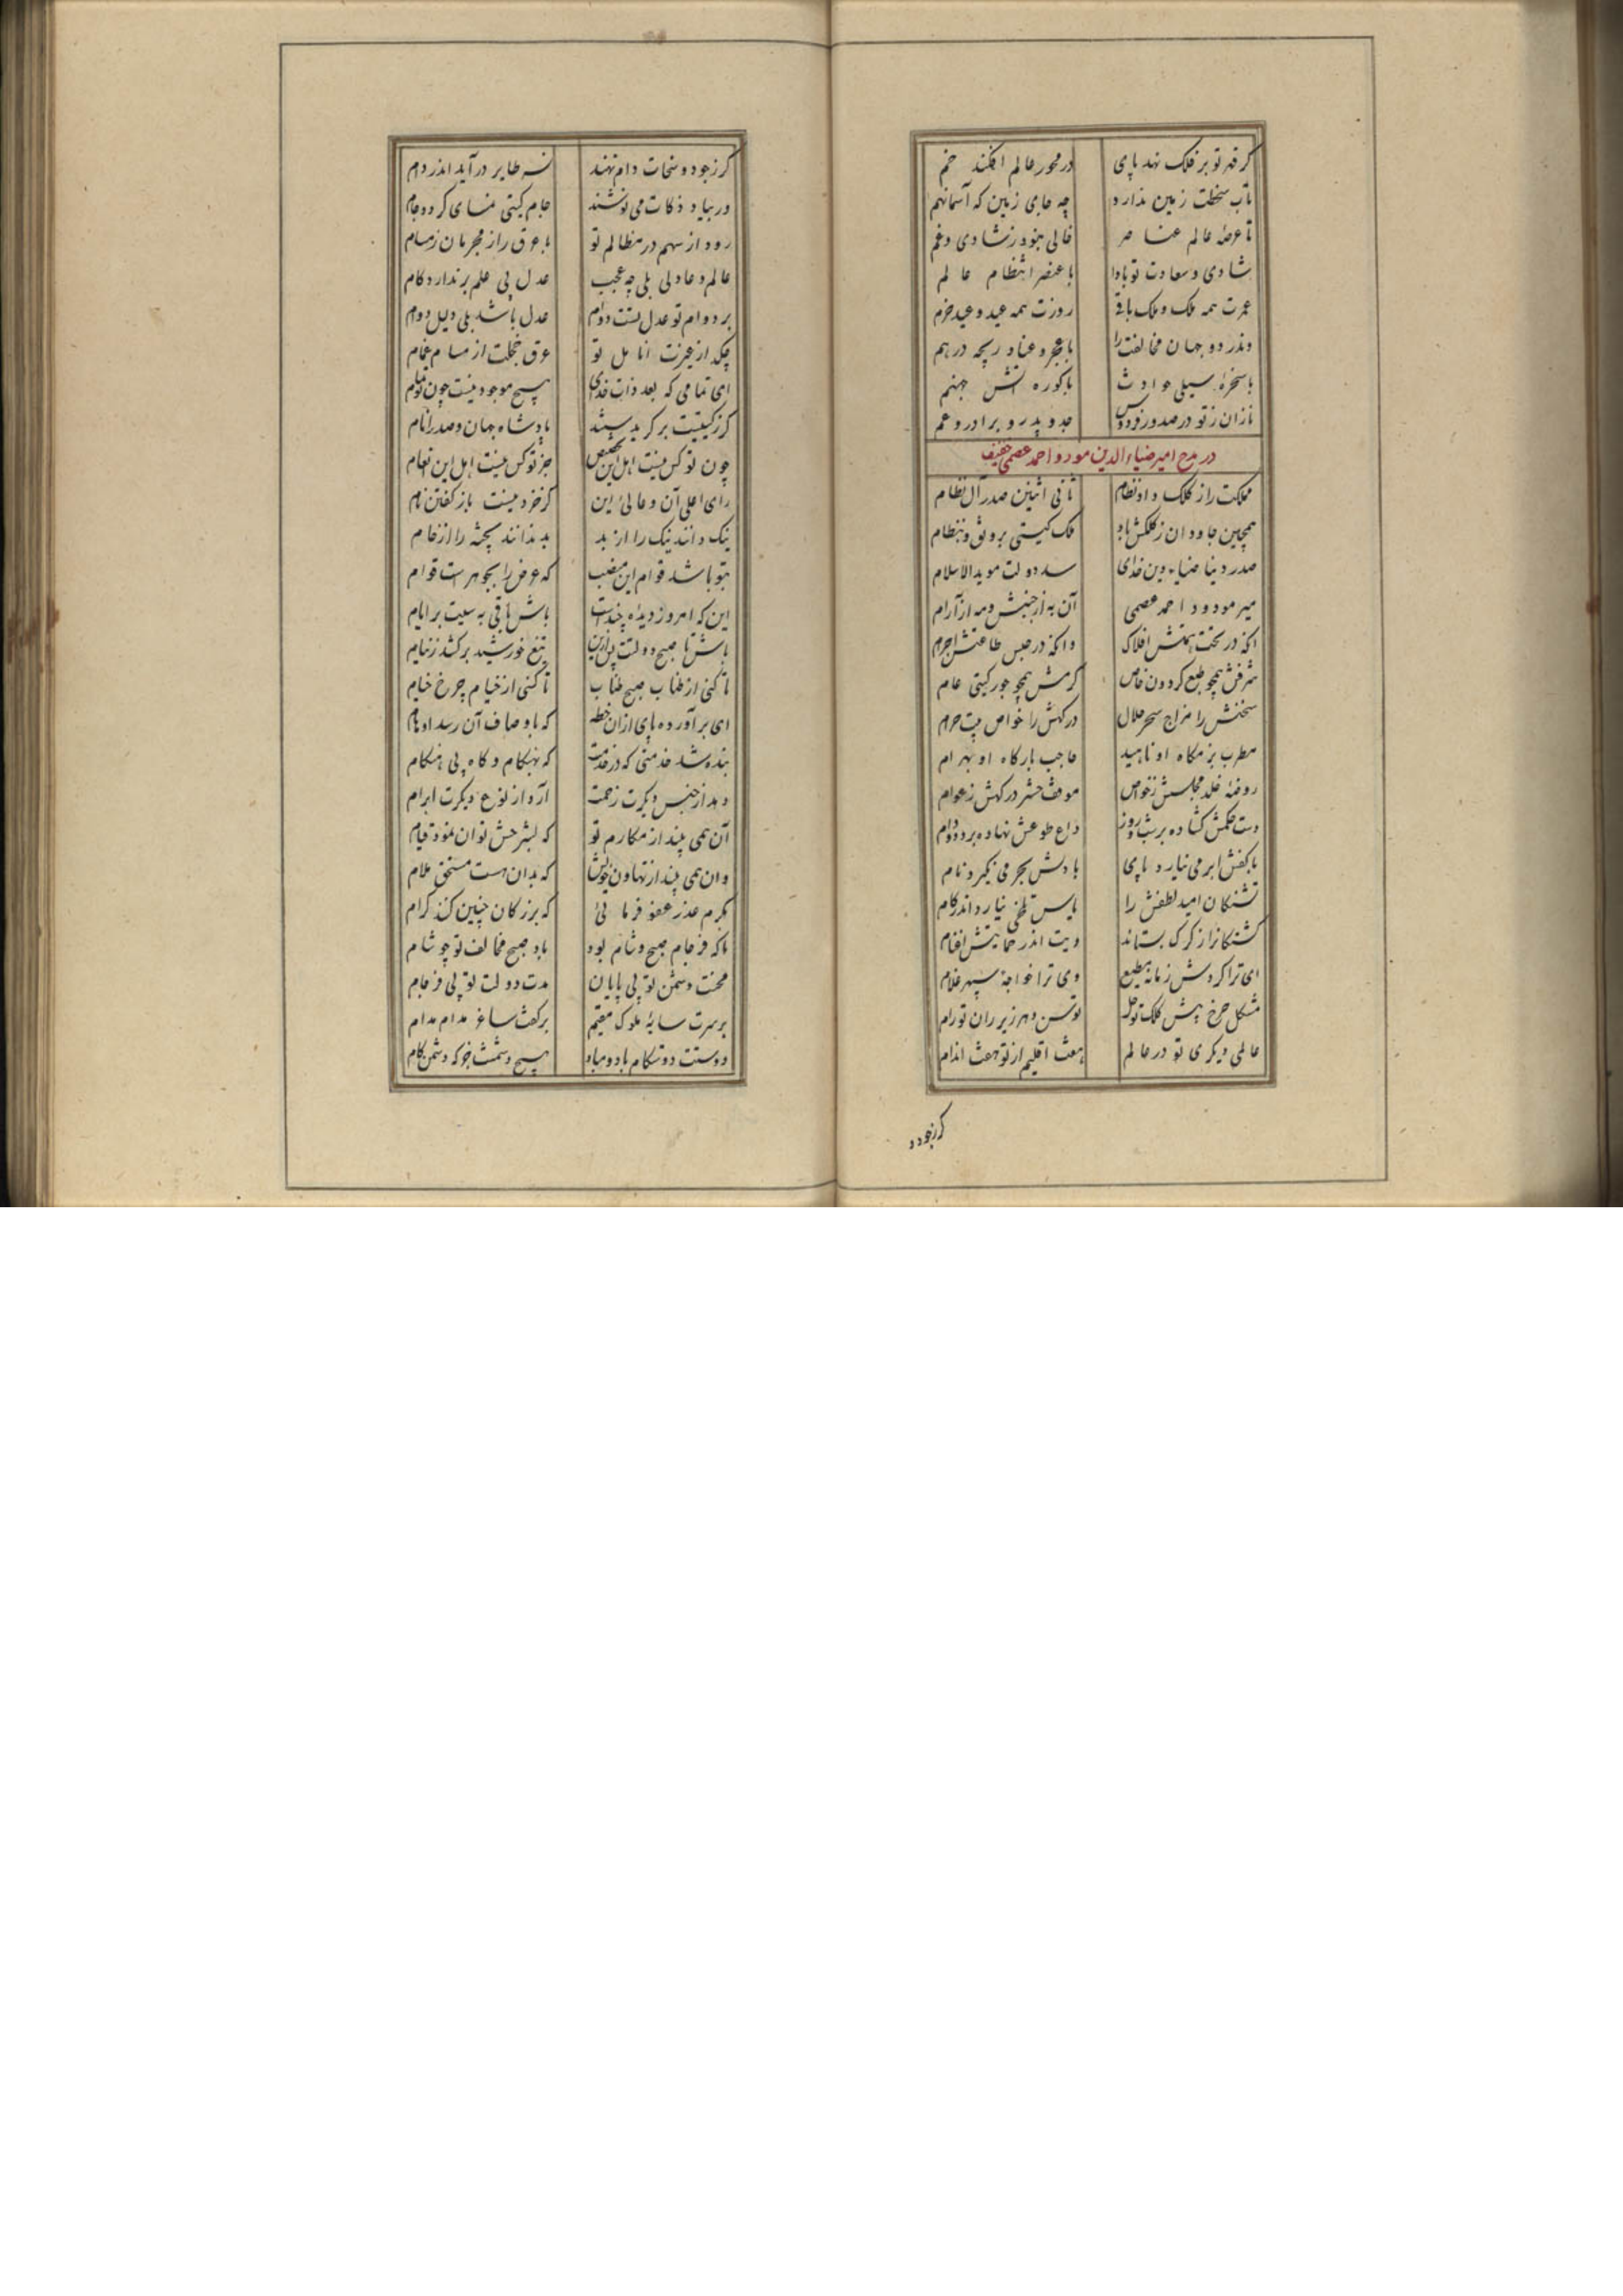 کر قهر تو بر فلک نهد پای در محور عالم افکند خم
تاب سخطت زمین ندارد چه جای زمین که آسمانهم
تا عرصهٔ عالم عناصر خالی نبود ز شادی و غم
شادی و سعادت تو بادا با عنصر انتظام عالم
عمرت همه ملک و ملک باقی روزت همه عید و عید خرم
وندر دو جهان مخالفت را با عجز و عنا و رنجه در هم
با سخرهٔ سیلی حوادث با کوره آتش جهنم
نازان ز تو در صدور فردوس جد و پدر و برادر و عم
در مدح امیر ضیاء الدین مودود احمد عصمی خفیف
مملکت را ز کلک داد نظام ثانی اثنین صدر آل نظام
همچنین جاودان ز کلکش باد ملک کیتی بر ونق و نظام
صدر دنیا ضیاء دین خدای سد دولت موید الاسلام
میر مودود احمد عصمی آن به از جنبش و مه از آرام
انکه در تحت همتش افلاک وانکه در حبس طاعتش اجرام
شرفش همچو طبع کردون خاص کرمش همچو جور کیتی عام
سخنش را مزاج سحر حلال در کهش را خواص بیت حرام
مطرب بزمکاه او ناهید حاجب بارکاه او بهرام
روضهٔ خلد مجلسش ز خواص موقف حشر درکهش ز عوام
دست حکمش کشاده بر شب و روز داغ طوعش نهاده بر دد و دام
با کفش ابر می نیارد پای با دلش بحر می نکیرد نام
تشنکان امید لطفش را یاس تلخی نیارد اندر کام
کشتکانرا ز کرک بستاند دیت اندر حمایتش اغنام
ای ترا کردش زمانه مطیع وی ترا خواجهٔ سپهر غلام
مشکل چرخ پیش کلک تو حل توسن دهر زیر ران تو رام
عالمی دیکری تو در عالم هفت اقلیم از تو هفت اندام
کر ز جود و
کر ز جود و سخات دام نهند نسر طایر در آید اندر دام
ور بیاد ذکات می نوشند جام کیتی نمای کردد جام
رود از سهم در مظالم تو با عرق راز مجرمان ز مسام
عالم و عادلی بلی چه عجب عدل بی علم بر ندارد کام
بر دوام تو عدل تست دوام عدل باشد بلی دلیل دوام
چکد از غیرت انامل تو عرق خجلت از مسام غمام
ای تمامی که بعد ذات خدای هیچ موجود نیست چون تو تمام
کر ز کیتیت بر کزیدستند پادشاه جهان و صدر انام
چون تو کس نیست اهل این تخصیص جز تو کس نیست اهل این انعام
رای اعلی آن و عالی این کز خرد نیست باز کفتن نام
نیک دانند نیک را از بد بد ندانند پخته را از خام
بتو باشد قوام این منصب که عرض را بجوهرست قوام
این که امروز دیدهٔ چندست باش باقی به بیعت بر ایام
باش تا صبح دولتت پس ازین تیغ خورشید بر کشد ز نیام
تا کنی از طناب صبح طناب تا کنی از خیام چرخ خیام
ای بر آورده پای ازان خطه که باوصاف آن رسد اوهام
بنده شد خدمتی که در خدمت که بهنکام و کاه بی هنکام
دهد از جنس دیکرت زحمت آرد از نوع دیکرت ابرام
آن همی بیند از مکارم تو که بشرحش توان نمود قیام
وان همی بیند از تهاون خویش که بدان هست مستحق ملام
بکرم عذر عفو فرمائی که بزرکان چنین کنند کرام
تا که فرجام صبح و شام بود باد صبح مخالف تو چو شام
محنت دشمن تو بی پایان مدت دولت تو بی فرجام
بر سرت سایهٔ ملوک مقیم بر کفت ساغر مدام مدام
دوستت دوستکام باد و مباد هیچ دشمنت جز که دشمن کام